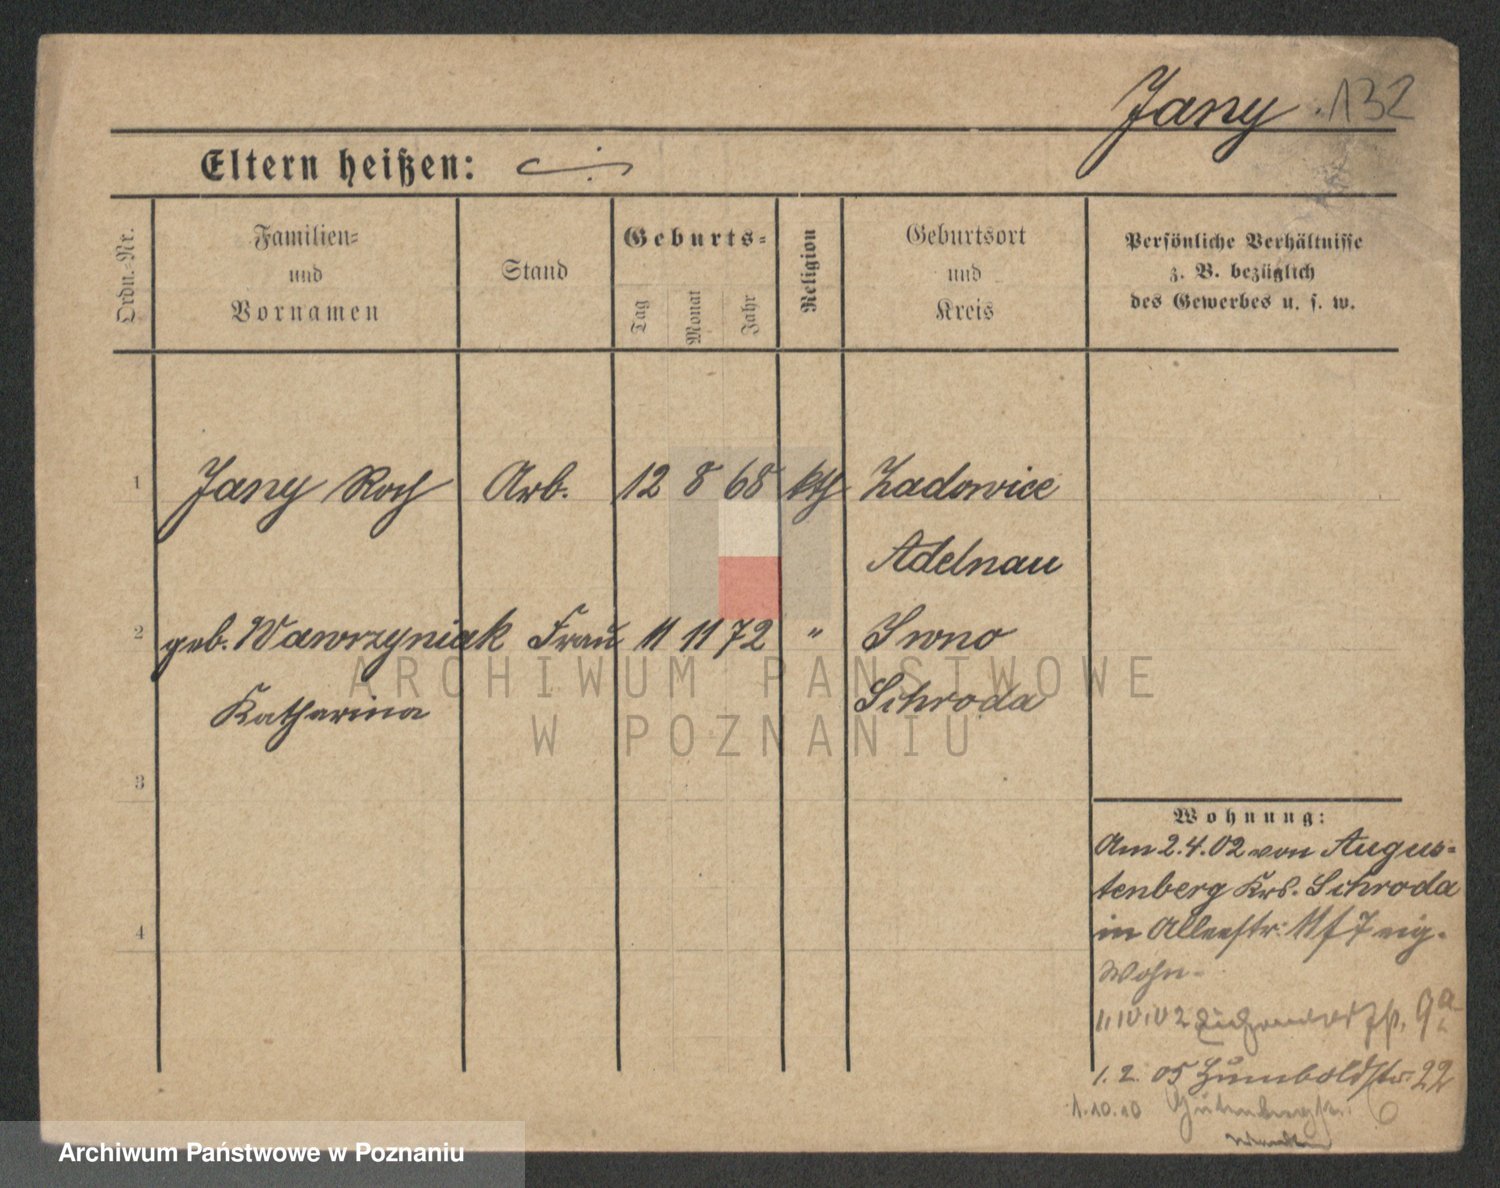 Jany 132
Eltern heißen:
Ordn. Nr.
Familien-
und
Vornamen
Stand
Geburts-
Tag
Monat
Jahr
Religion
Geburtsort
und
Kreis
Persönliche Verhältnisse
z. B. bezüglich
des Gewerbes u. s. w.
1 Jany Roch Arb. 12 8 68 kth Zadowice
Adelnau
2 geb. Wawrzyniak Frau 11 11 72 " Iwno
Katharina Schroda
ARCHIWUM PAŃSTWOWE
W POZNANIU
3
4
Wohnung:
Am 2.4.02 von Augus-
tenberg Krs. Schroda
in Alleestr. eig.
Wohn-
1.10.02 9a
1.2.05 Humboldstr. 22
1.10.10 Gutenbergstr. 6
wenden
Archiwum Państwowe w Poznaniu